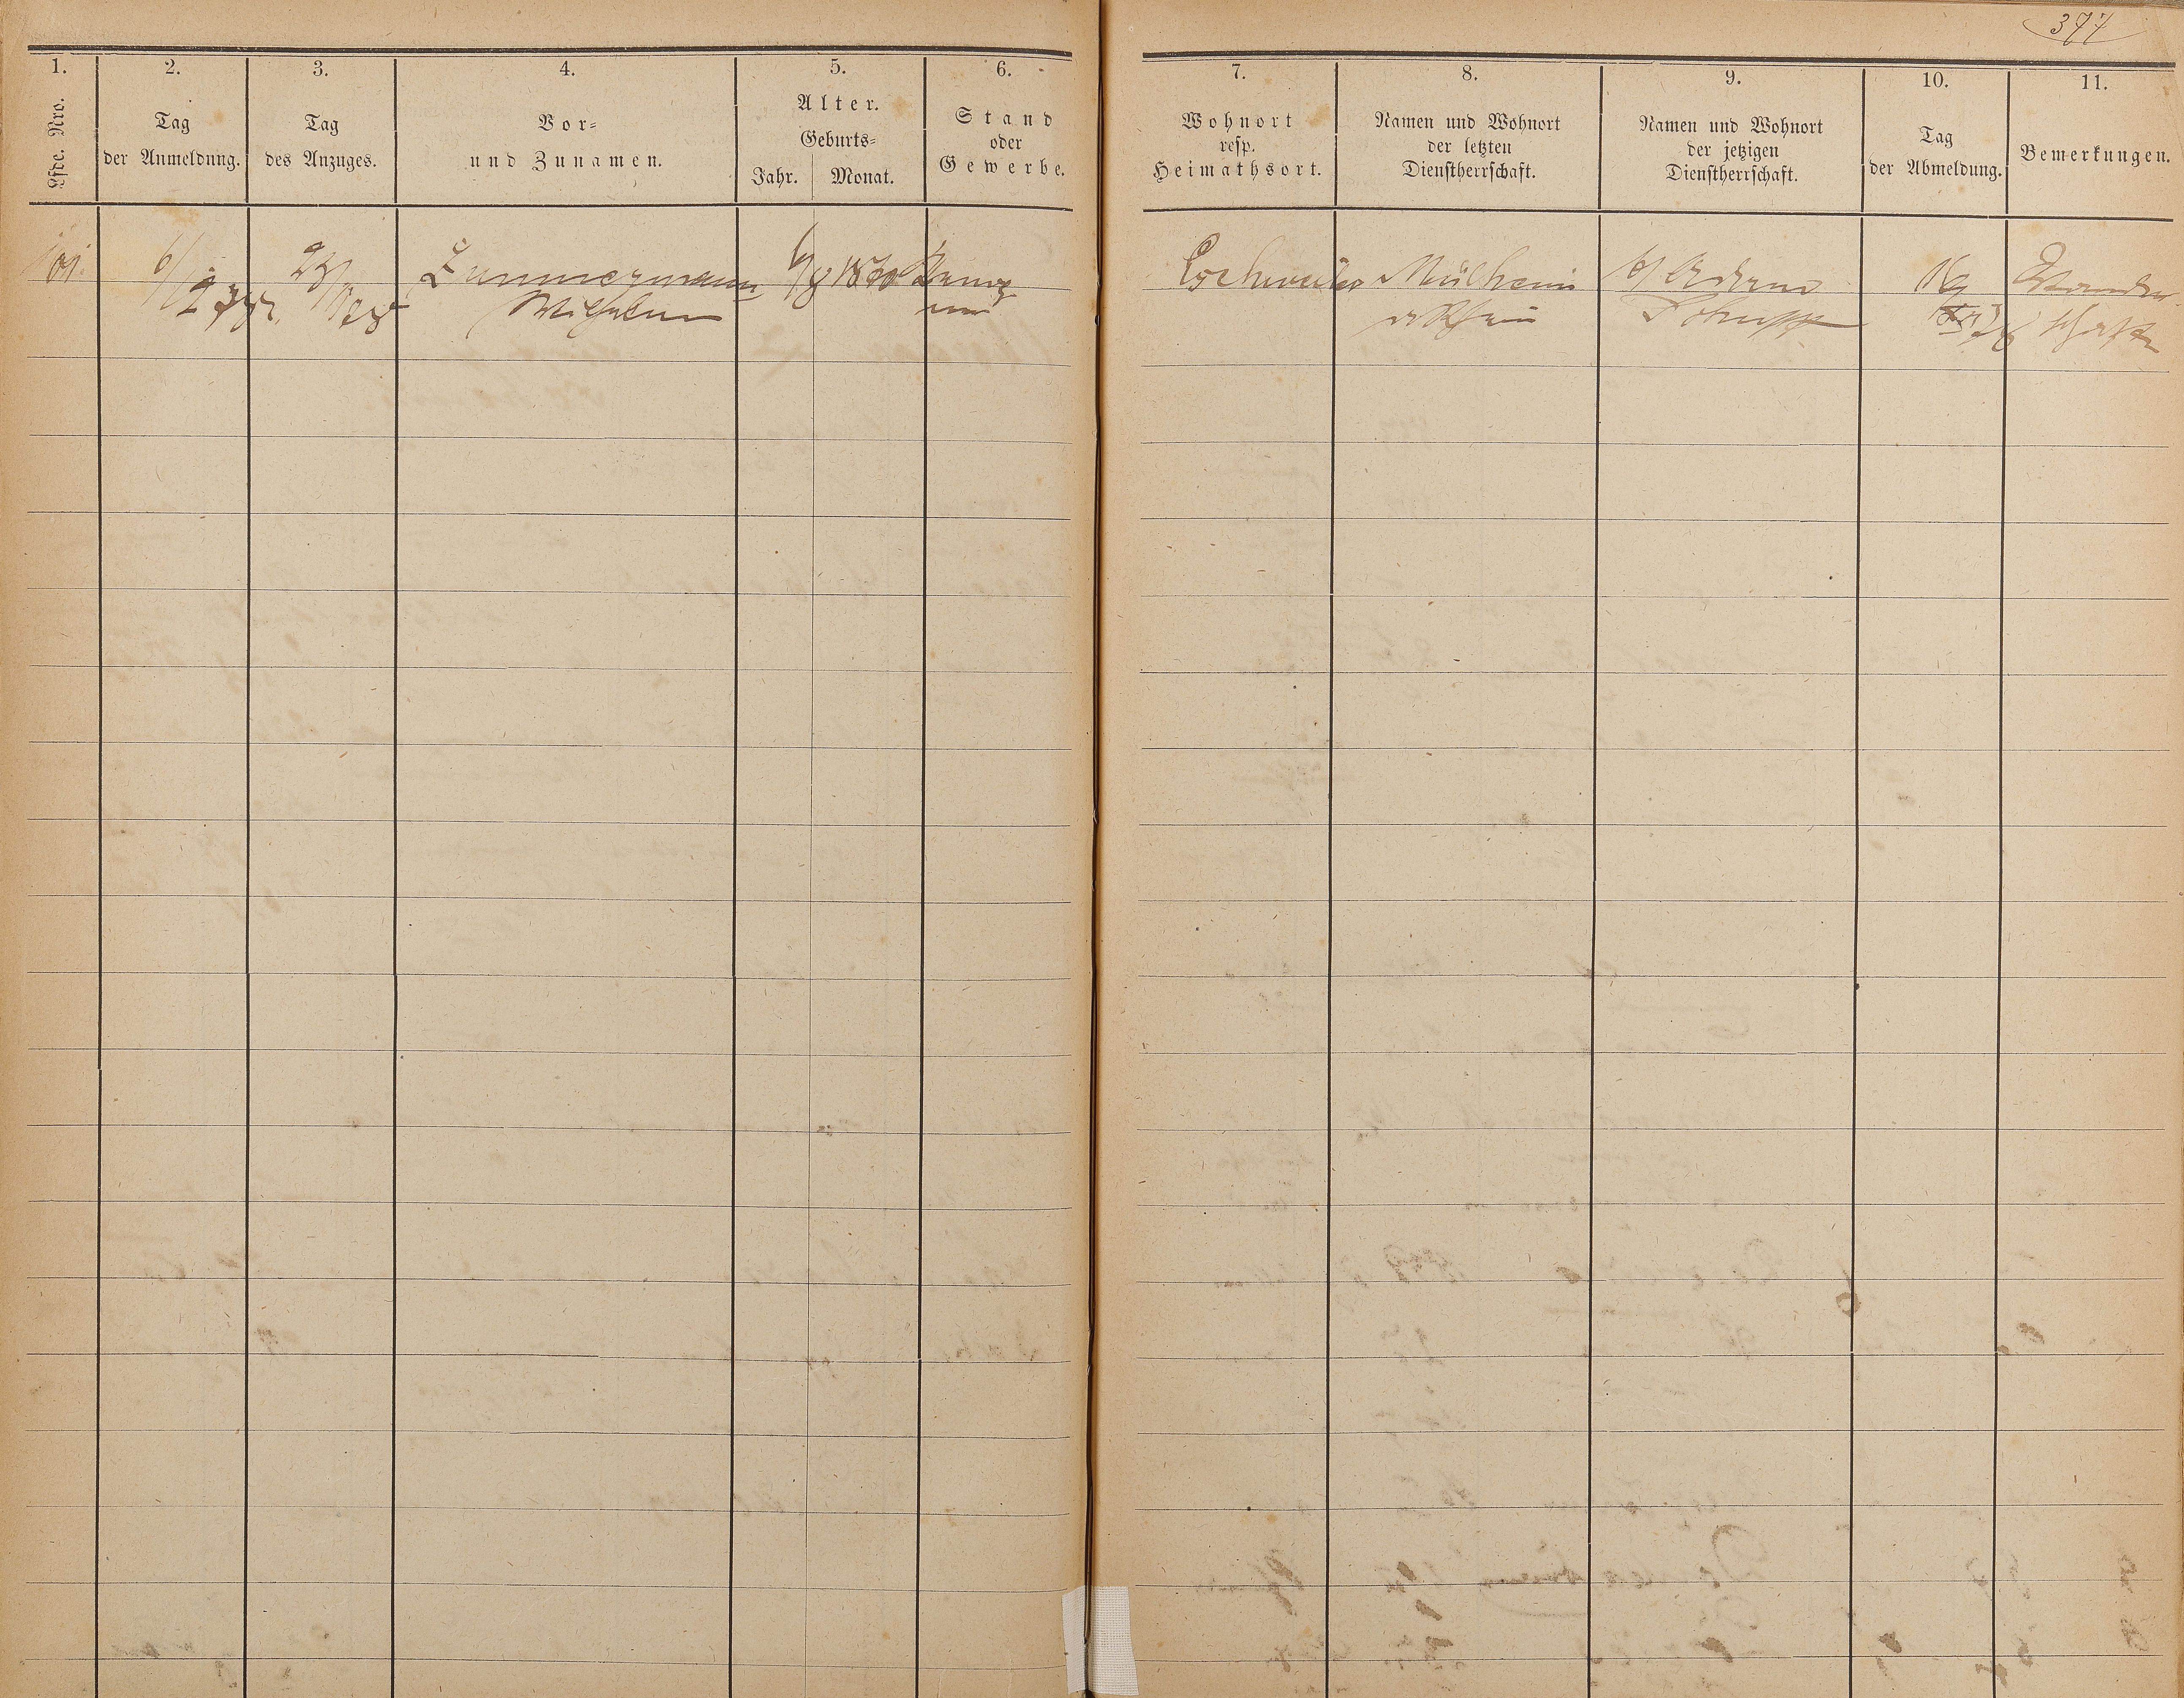 377
1. 2. 3. 4. 5. 6. 7. 8. 9. 10. 11.
Lfde. Nro.
Tag
der Anmeldung.
Tag
des Anzuges.
Vor-
und Zunamen.
Alter.
Geburts-
Jahr. Monat.
Stand
oder
Gewerbe.
Wohnort
resp.
Heimathsort.
Namen und Wohnort
der letzten
Dienstherrschaft.
Namen und Wohnort
der jetzigen
Dienstherrschaft.
Tag
der Abmeldung.
Bemerkungen.
101. 6/ 23/ Zimmermann 6/8 1860 Eschweiler Mülheim b/ Wander
Wilhelm a Rhein schaft